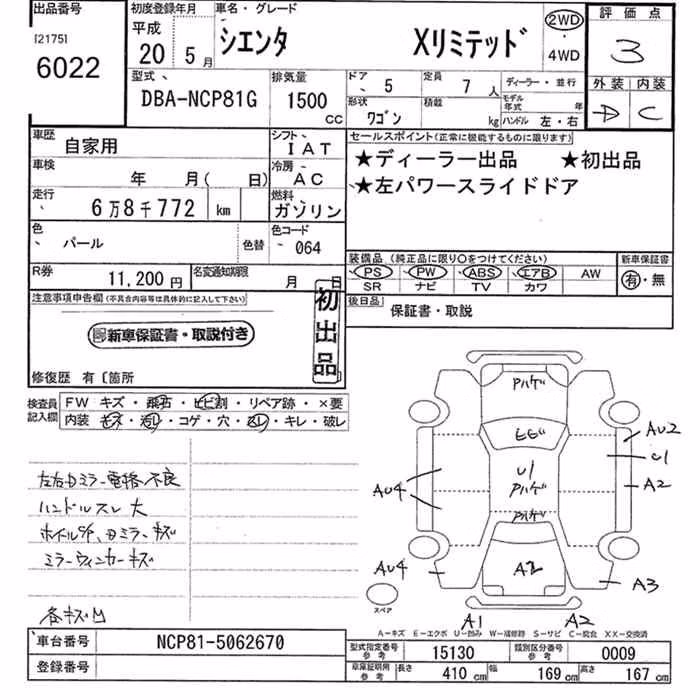 出品番号
[2175]
6022
初度登録年月
平成
20年 5月
車名・グレード
シエンタ Xリミテッド
2WD
・
4WD
評価点
3
外装 内装
D C
型式、
DBA-NCP81G
排気量
1500
CC
ドア 5
定員 7人
形状 ワゴン
積載 kg
ディーラー・並行
モデル年式 年
ハンドル 左・右
車歴 自家用
シフト、 IAT
車検 年 月( 日)
冷房 AC
走行 6万8千772 km
燃料 ガソリン
色 パール
色替
色コード 064
R券 11,200円
名変通知期限 月 日
セールスポイント(正常に機能するものに限ります)
★ディーラー出品 ★初出品
★左パワースライドドア
装備品(純正品に限り○をつけてください)
新車保証書
PS PW ABS エアB AW
SR ナビ TV カワ
有・無
後日品 保証書・取説
注意事項申告欄(不具合内容等は具体的に記入して下さい)
新車保証書・取説付き
初出品
修復歴 有〔箇所
検査員記入欄
FW キズ・飛石・ヒビ割・リペア跡・×要
内装 キズ・汚レ・コゲ・穴・スレ・キレ・破レ
左右Dミラー電格不良
ハンドルスレ大
ミラーウィンカーキズ
各キズ凹
Pハゲ
U1
Pハゲ
Pハゲ
A2
AU2
U1
A2
AU4
AU4
A3
スペア
A1 A2
A-キズ E-エクボ U-凹み W-補修跡 S-サビ C-腐食 XX-交換済
車台番号 NCP81-5062670
登録番号
型式指定番号 参考 15130
類別区分番号 参考 0009
車庫証明用 参考 長さ 410 cm 幅 169 cm 高さ 167 cm